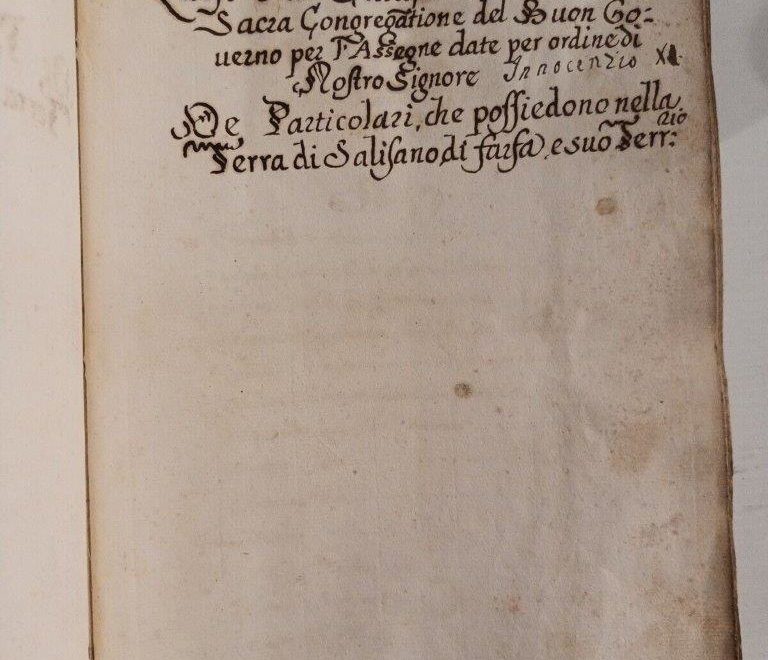 Sacra Congregatione del Buon Go:
uerno per l'Assegne date per ordine di
Nostro Signore Innocenzio XI
De Particolari, che possiedono nella
Terra di Salisano di farfa, e suo Terr:rio